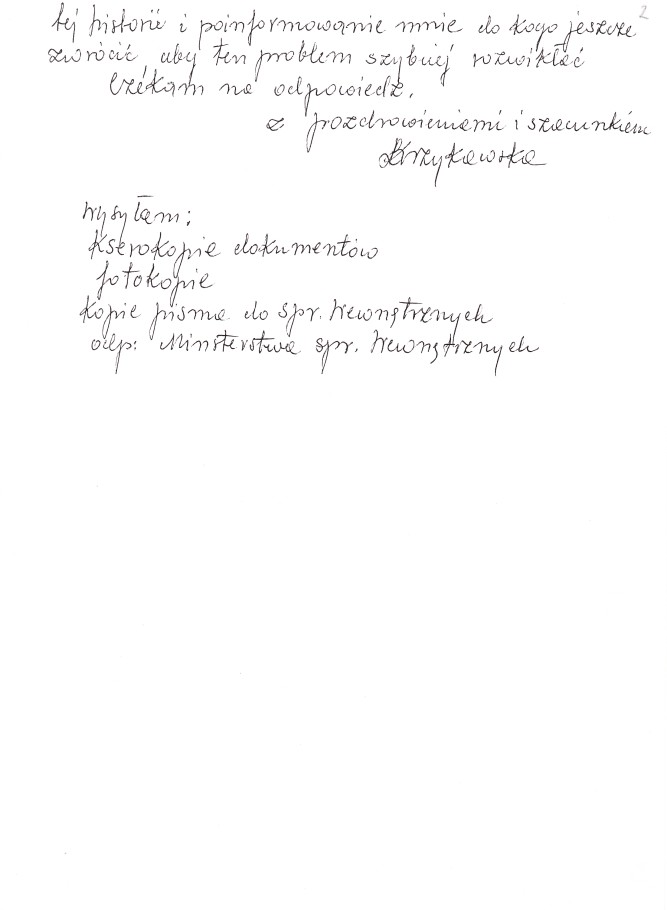 2
tej historii i poinformowanie mnie do kogo jeszcze
zwrócić, aby ten problem szybciej rozwikłać
Czekam na odpowiedź.
z pozdrowieniami i szacunkiem
Krzykawska
Wysyłam;
Kserokopie dokumentów
fotokopie
kopie pisma do spr. Wewnętrznych
odp: Minsterstwa spr. Wewnętrznych